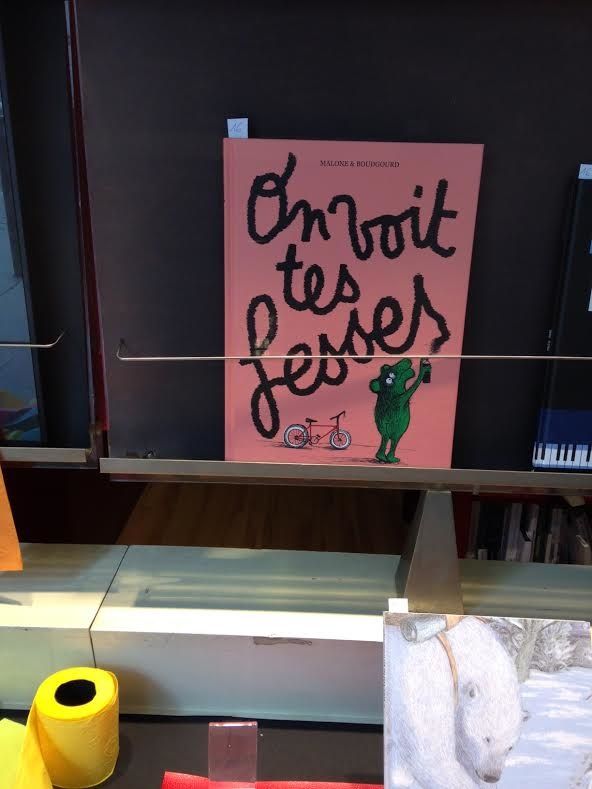 16
MALONE & BOUDGOURD
On voit
tes
fesses
16